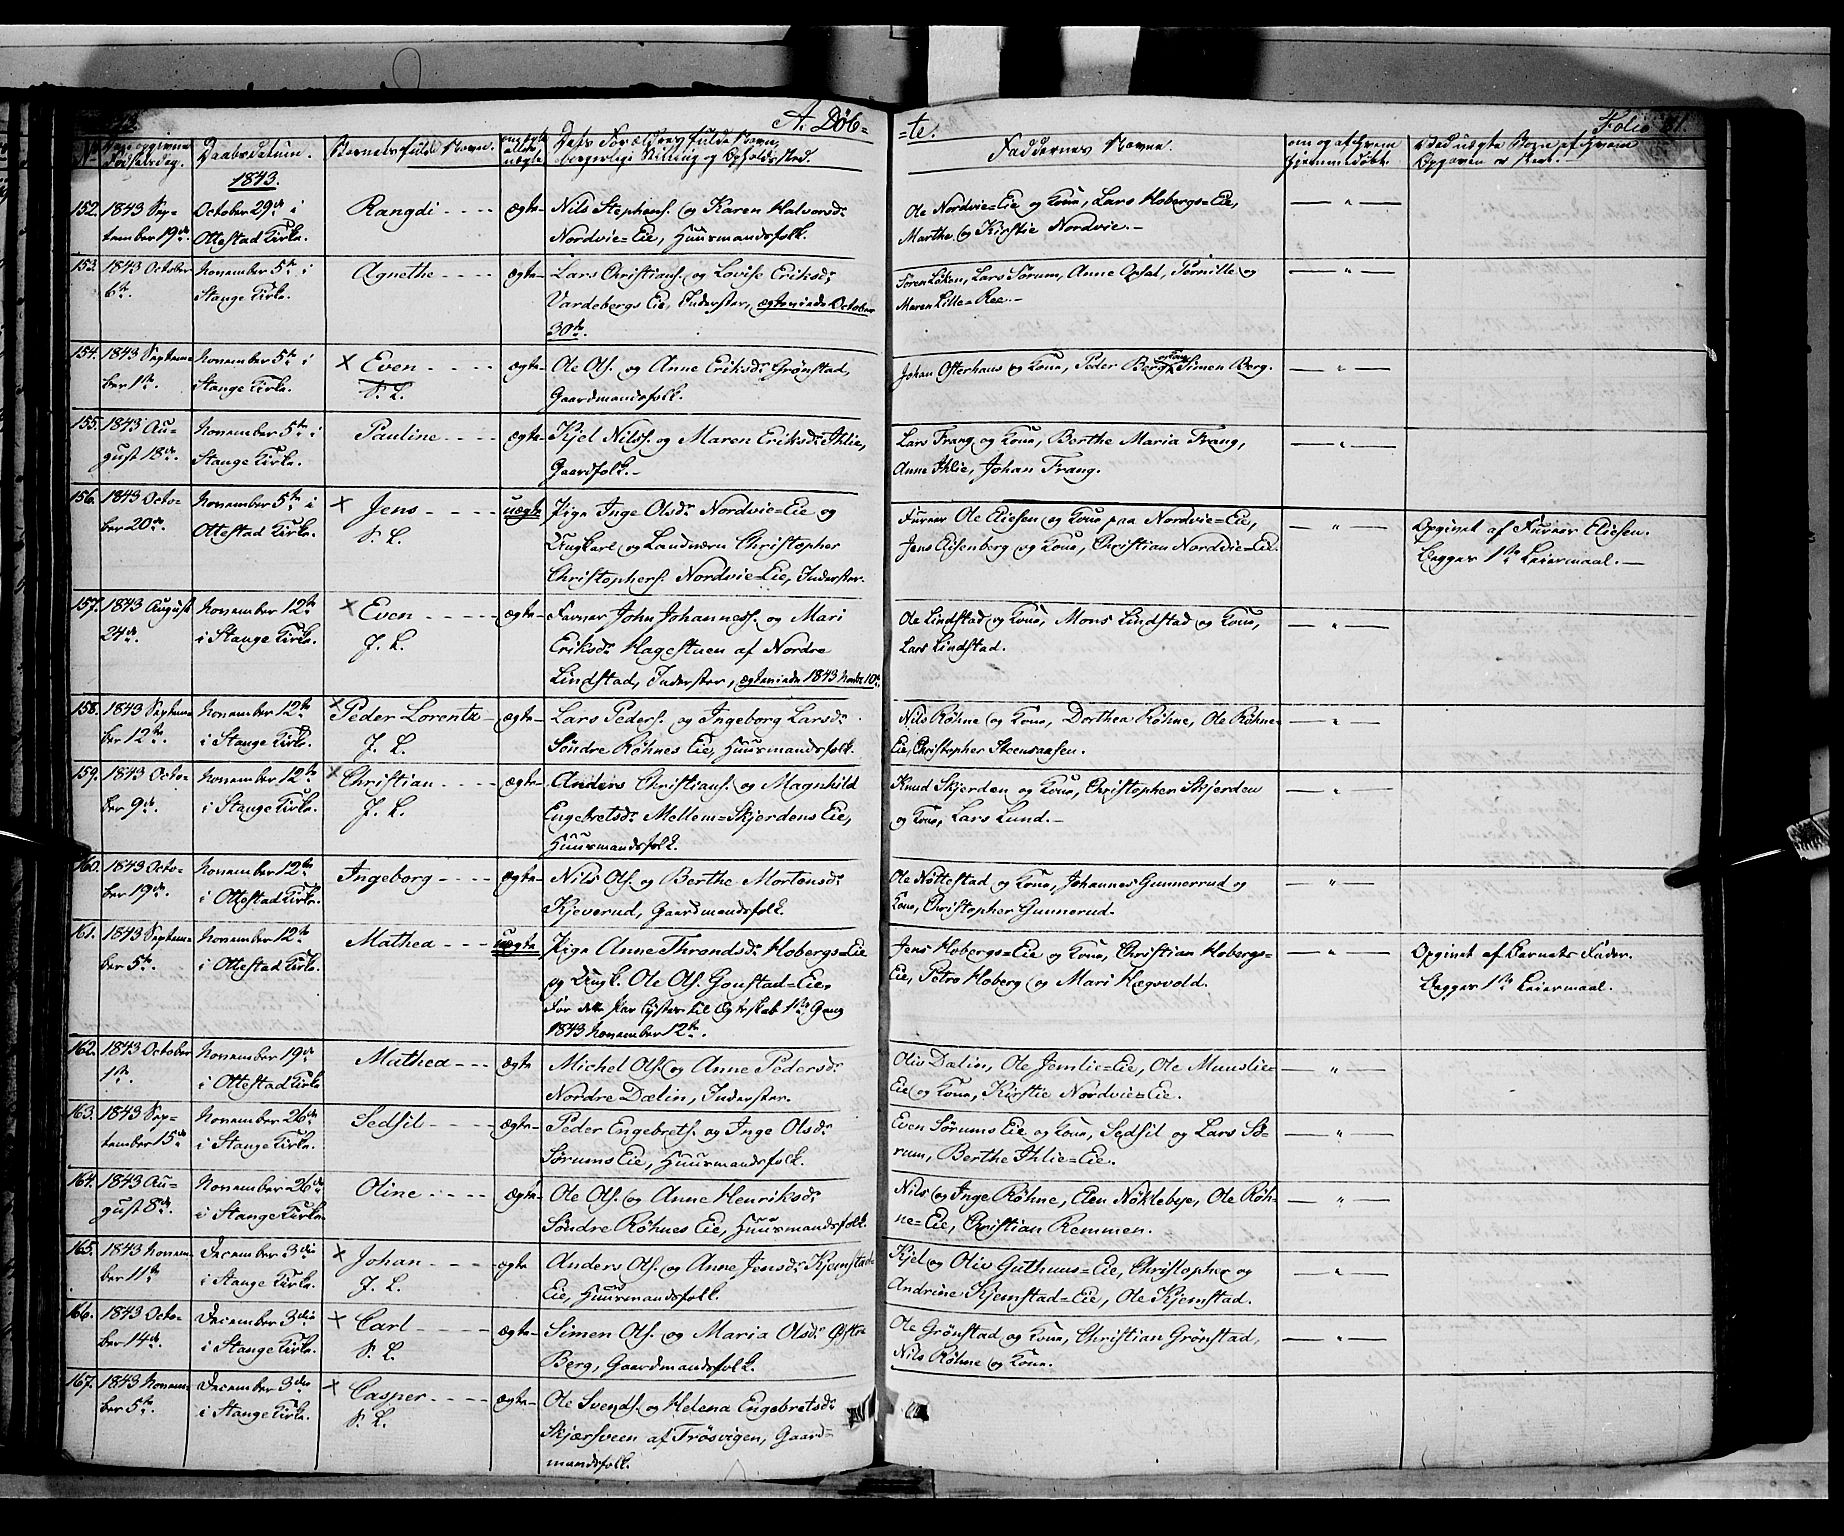 A. Døb-
-te.
Folio
No
Daabsdatum.
Barnets fulde Navn.
Dets Forældres fulde Navn,
borgerlige Stilling og Opholdssted.
Faddernes Navne.
om og af hvem
hjemmedøbt.
1843.
152. 1843 Sep-
tember 19de
October 29de i
Ottestad Kirke.
Rangdi
ægte
Nils Stephens. og Karen Halvorsdr
Nordvie-Eie, Huusmandsfolk.
Ole Nordvie-Eie og Kone, Lars Hobergs-Eie,
Marthe og Kirstie Nordvie.-
— " —
153. 1843 October
6te.
November 5te i
Stange Kirke.
Agnethe
ægte
Lars Christians. og Lovise Eriksdr
Vardebergs Eie, Inderster, ægteviede October
30te.
Søren Løken, Lars Sørum, Anne Opsal, Pernille og
Maren Lille-Ree.-
— " —
154. 1843 Septem-
ber 1te.
November 5te i
Stange Kirke.
× Even
S. L.
ægte
Ole Ols. og Anne Eriksdr Grønstad,
Gaardmandsfolk.
Johan Osterhaus og Kone, Peder Berg og Kone, Simen Berg.
— " —
155. 1843 Au-
gust 18de.
November 5te i
Stange Kirke.
Pauline
ægte
Kjel Nilss. og Maren Eriksdr Ihlie,
Gaardfolk.-
Lars Frang og Kone, Berthe Maria Frang,
Anne Ihlie, Johan Frang.
— " —
156. 1843 Octo-
ber 20de.
November 5te i
Ottestad Kirke.
× Jens
S. L.
uægte
Pige Inge Olsdr Nordvie-Eie og
Ungkarl og Landværn Christopher
Christophers. Nordvie-Eie, Inderster.
Fureer Ole Eliesen og Kone paa Nordvie-Eie,
Jens Eisenberg og Kone, Christian Nordvie-Eie.
— " —
Opgivet af Fureer Eliesen.
Begges 1te Leiermaal.—
157. 1843 August
24de.
November 12te
i Stange Kirke.
× Even
J. L.
ægte
Farver John Johanness. og Mari
Eriksdr Hagestuen af Nordre
Lindstad, Inderster, ægteviede 1843 Novbr 10de
Ole Lindstad og Kone, Mons Lindstad og Kone,
Lars Lindstad.
— " —
158. 1843 Septem-
ber 12te.
November 12te
i Stange Kirke.
× Peder Lorentz
J. L.
ægte
Lars Peders. og Ingeborg Larsdr
Søndre Røhnes Eie, Huusmandsfolk.
Nils Røhne og Kone, Dorthea Røhne, Ole Røhne-
Eie, Christopher Steensaasen.
— " —
159. 1843 Octo-
ber 9de.
November 12te
i Stange Kirke.
× Christian
J. L.
ægte
Anders Christians. og Magnhild
Engebretsdr Mellem-Skjerdens Eie,
Huusmandsfolk.
Knud Skjerden og Kone, Christopher Skjerden
og Kone, Lars Lund.-
— " —
160. 1843 Octo-
ber 19de.
November 12te
i Ottestad Kirke.
Ingeborg
ægte
Nils Ols. og Berthe Mortensdr
Kjeverud, Gaardmandsfolk.
Ole Nøttestad og Kone, Johannes Gunnerud og
Kone, Christopher Gunnerud.
— " —
161. 1843 Septem-
ber 5te.
November 12te
i Ottestad Kirke.
Mathea
uægte
Pige Anne Throndsdr Hobergs-Eie
og Ungk. Ole Ols. Gonstad-Eie.
For dette Par lystes til Ægteskab 1te Gang
1843 November 12te.
Jens Hobergs-Eie og Kone, Christian Hobergs-
Eie, Petro Hoberg og Mari Hægsvold.
— " —
Opgivet af Barnets Fader.
Begges 1te Leiermaal.
162. 1843 October
1te.
November 19de
i Ottestad Kirke
Mathea
ægte
Michel Ols. og Anne Pedersdr
Nordre Dælin, Inderster.
Oliv Dælin, Ole Jemlie-Eie, Ole Muuslie-
Eie og Kone, Kirstie Nordvie-Eie.
— " —
163. 1843 Sep-
tember 15de
November 26de
i Stange Kirke.
Sedsil
ægte
Peder Engebrets. og Inge Olsdr
Sørums Eie, Huusmandsfolk.
Even Sørums Eie og Kone, Sedsil og Lars Sø-
rum, Berthe Ihlie-Eie.
— " —
164. 1843 Au-
gust 8de.
November 26de
i Stange Kirke
Oline
ægte
Ole Ols. og Anne Henriksdr
Søndre Røhnes Eie, Huusmandsfolk.
Nils og Inge Røhne, Elen Nøklebye, Ole Røh-
ne-Eie, Christian Remmen.
— " —
165. 1843 Novem-
ber 11te
December 3die
i Stange Kirke.
× Johan
J. L.
ægte
Anders Ols. og Anne Jensdr Kjemstad-
Eie, Huusmandsfolk.
Kjel og Oliv Guthuus-Eie, Christopher og
Andrine Kjemstad-Eie, Ole Kjemstad.
— " —
166. 1843 Octo-
ber 14de.
December 3die
i Stange Kirke.
× Carl
S. L.
ægte
Simen Ols. og Maria Olsdr Østre
Berg, Gaardmandsfolk.
Ole Grønstad og Kone, Christian Grønstad,
Nils Røhne og Kone.
— " —
167. 1843 Novem-
ber 5te.
December 3die
i Stange Kirke.
× Casper
S. L.
ægte
Ole Svends. og Helena Engebretsdr
Skjærsveen af Trøsvigen, Gaard-
mandsfolk.